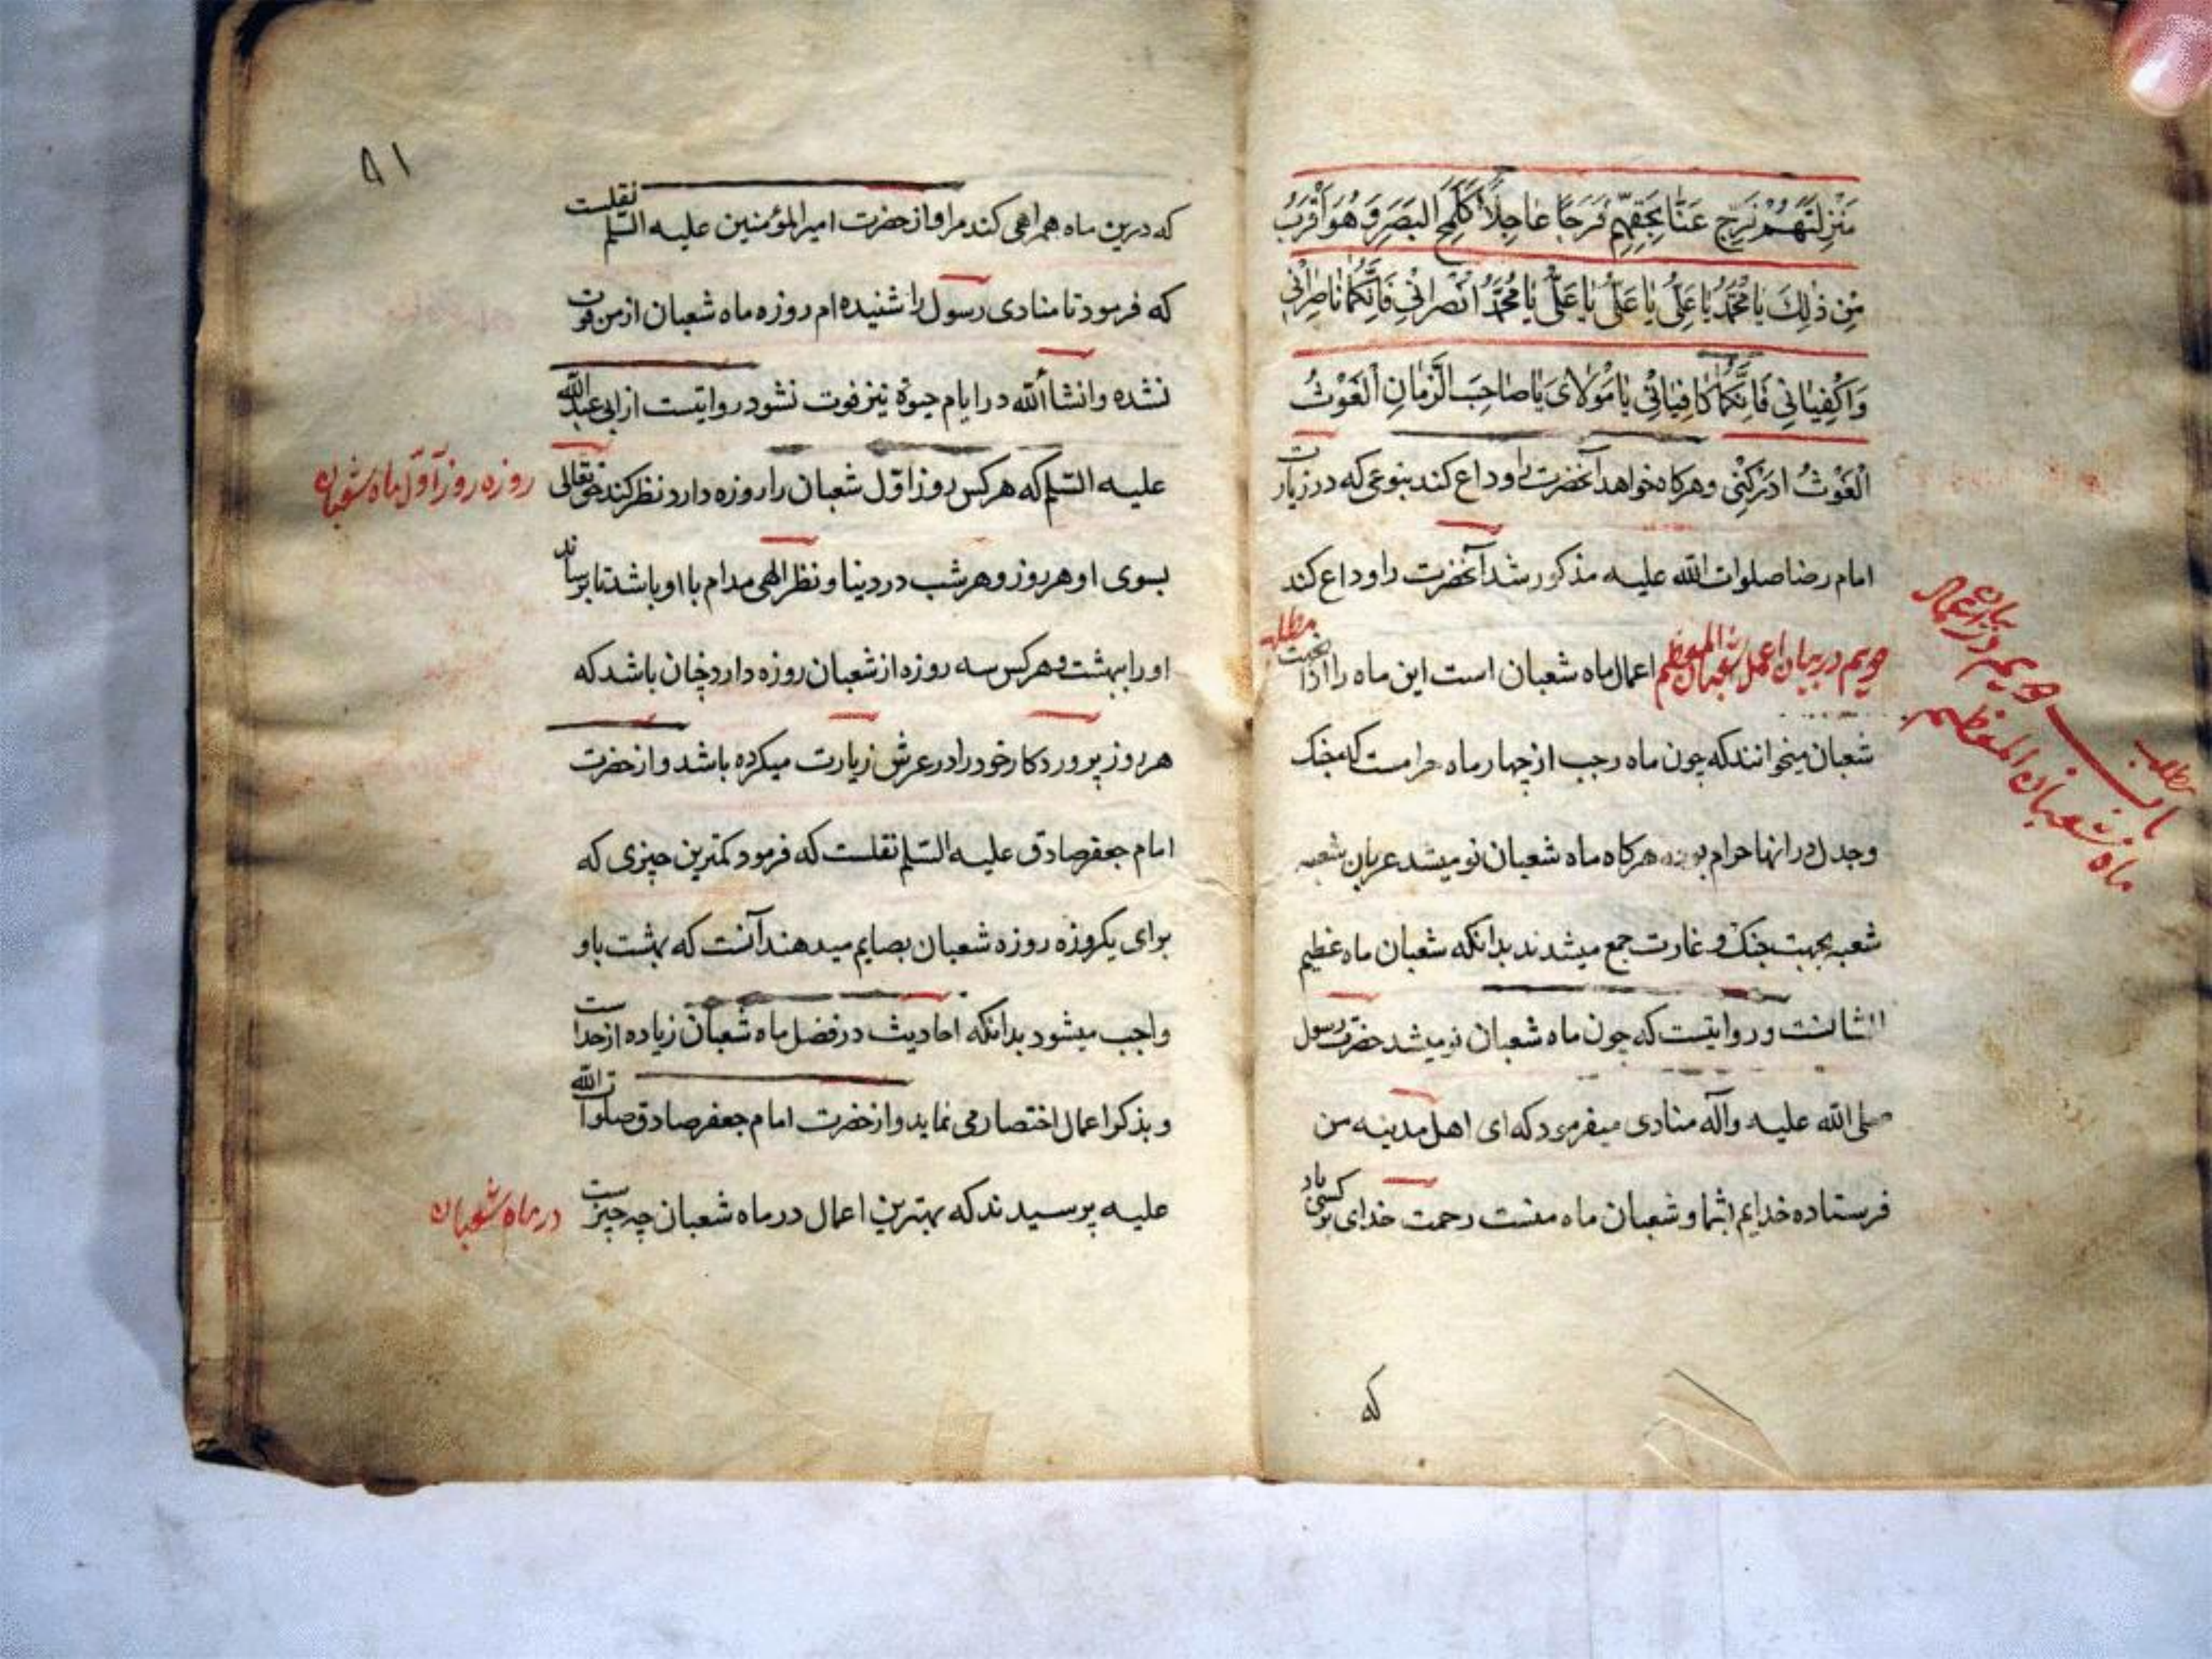 مَنْزِلَتَهُمْ فَرِّج عَنّا بِحَقِّهِمْ فَرَجًا عَاجِلًا كَلَمْحِ البَصَرِ وَ هُوَ اَقْرَبُ
مِن ذٰلِكَ يَا مُحَمَّدُ يَا عَلِىُّ يَا عَلِىُّ يَا مُحَمَّدُ اُنْصُرانِى فَاِنَّكُمَا نَاصِرانِى
وَاكْفِيَانِى فَاِنَّكُمَا كَافِيَانِى يَا مَوْلَاىَ يَا صَاحِبَ الزَّمَانِ اَلْغَوْثُ
الْغَوْثُ اَدْرِكْنِى و هرکاه خواهد آنحضرت را وداع کند بنوعی که در زیارت
امام رضا صلوات الله علیه مذکور شد آنحضرت را وداع کند
دویم در بیان اعمال شعبان المعظم اعمال ماه شعبان است این ماه را ازانجهت
مطلب
شعبان میخوانند که چون ماه رجب از چهار ماه حرامست که جنک
و جدل در انها حرام بوده هرکاه ماه شعبان نو میشد عربان شعبه
شعبه بجهت جنک و غارت جمع میشدند بدانکه شعبان ماه عظیم
الشانست و روایتست که چون ماه شعبان نو میشد حضرت رسول
صلی الله علیه وآله منادی میفرمود که ای اهل مدینه من
فرستاده خدایم بشما و شعبان ماه منست رحمت خدای بر کسی باد
که
مطلب
باب دویم در بیان اعمال
ماه شعبان المعظم
٨١
که درین ماه همراهی کند مرا و از حضرت امیر المؤمنین علیه السّلم نقلست
که فرمود تا منادی رسول را شنیده ام روزه ماه شعبان از من فوت
نشده و انشاأالله در ایام حیوة نیز فوت نشود روایتست از ابی عبدالله
علیه السّلم که هر کس روز اول شعبان را روزه دارد نظر کند حق تعالی
روزه روز اوّل ماه شعبان
بسوی او هر روز و هر شب در دینا و نظر الهی مدام با او باشد تا برساند
او را ببهشت و هر کس سه روزه از شعبان روزه دارد چنان باشد که
هر روز پروردکار خود را در عرش زیارت میکرده باشد و از حضرت
امام جعفر صادق علیه السّلم نقلست که فرمود کمترین چیزی که
برای یکروزه روزه شعبان بصایم میدهند آنست که بهشت باو
واجب میشود بدانکه احادیث در فضل ماه شعبان زیاده از حد است
و بذکر اعمال اختصار می نماید و از حضرت امام جعفر صادق صلوات الله
علیه پرسیدند که بهترین اعمال در ماه شعبان چه چیز است
در ماه شعبان